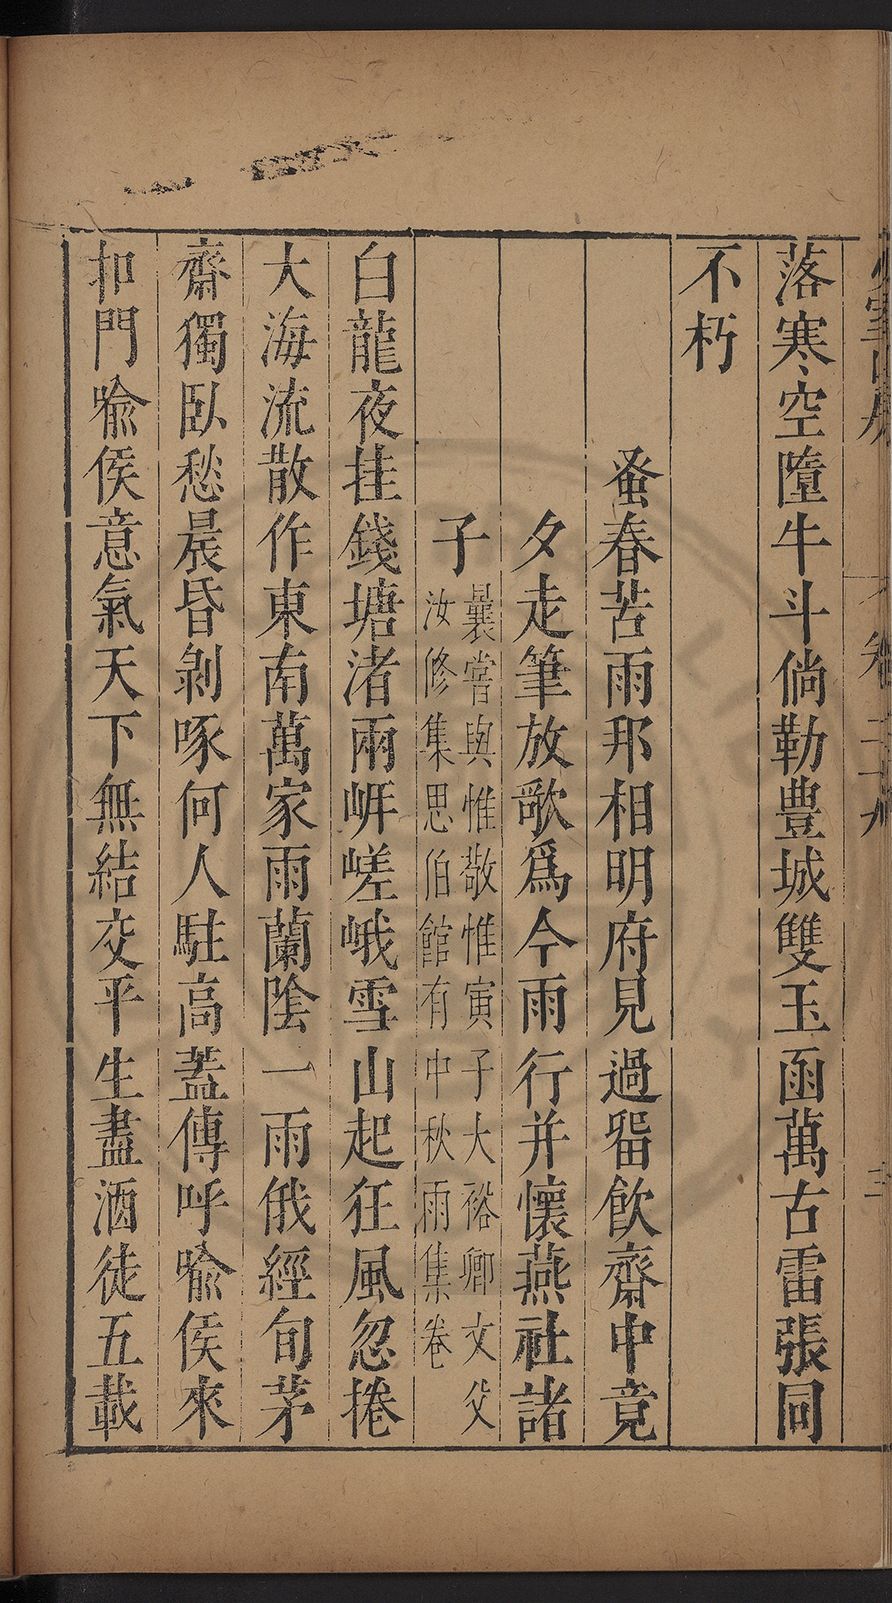 落寒空墮牛斗倘勒豊城雙玉函萬古雷張同
不朽
蚤春苦雨邢相明府見過畱飲齋中竟
夕走筆放歌爲今雨行并懷燕社諸
子
曩嘗與惟敬惟寅子大裕卿文父
汝修集思伯館有中秋雨集卷
白龍夜挂錢塘渚兩岸嵯峨雪山起狂風忽捲
大海流散作東南萬家雨蘭陰一雨俄經旬茅
齋獨臥愁晨昏剝啄何人駐高蓋傳呼喻侯來
扣門喻侯意氣天下無結交平生盡酒徒五載